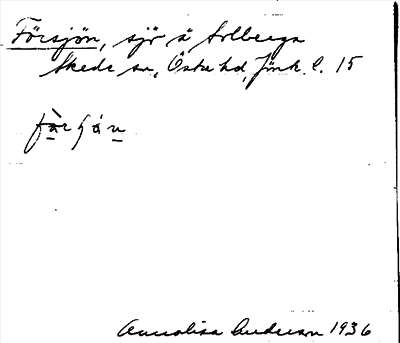 Försjön, sjö å Solberga
Skede sn, Östra hd, Jönk. l. 15
Annalisa Anderson 1936